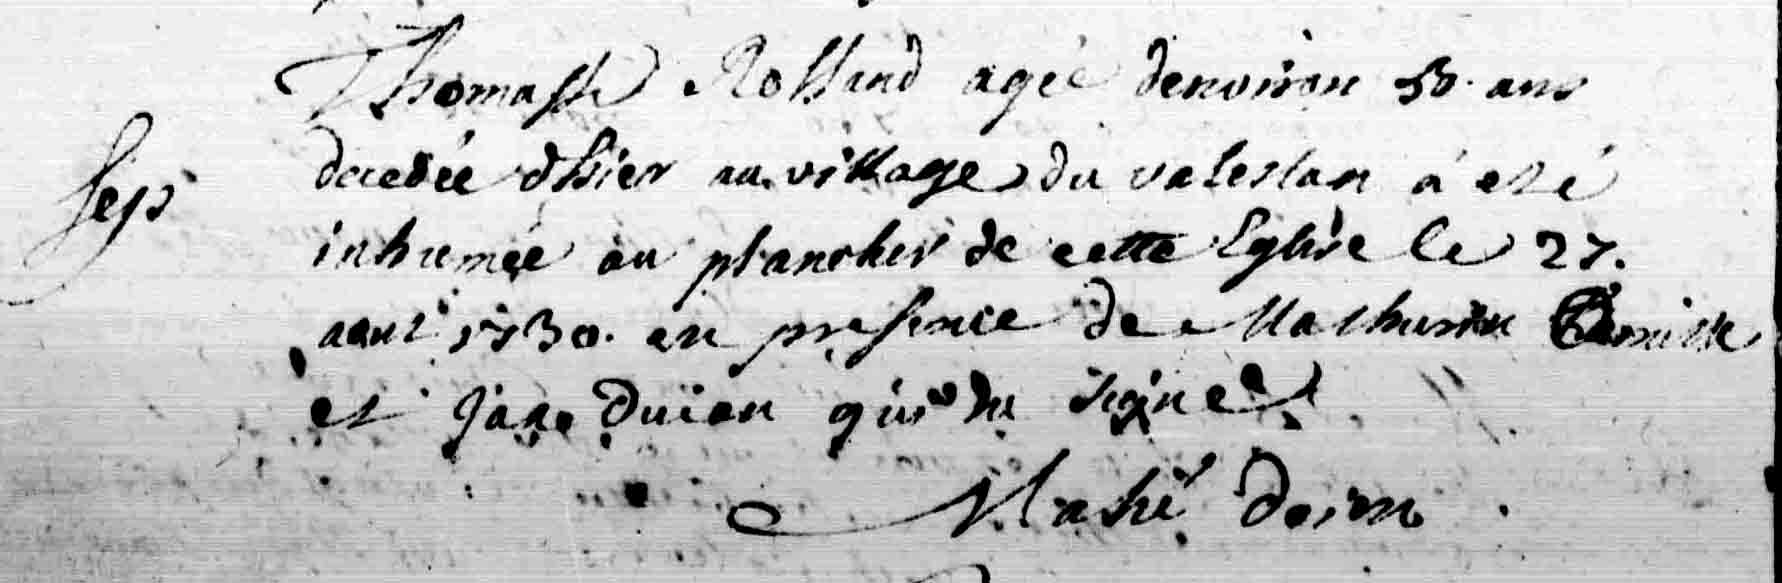 Thomasse Rolland agée denviron 50. ans
sep decedée dhier au village du valeslan a eté
inhumée au plancher de cette Eglise le 27.
aout 1730. en presence de Mathurin
et Jan Duian qui ne signe
Mahé doien